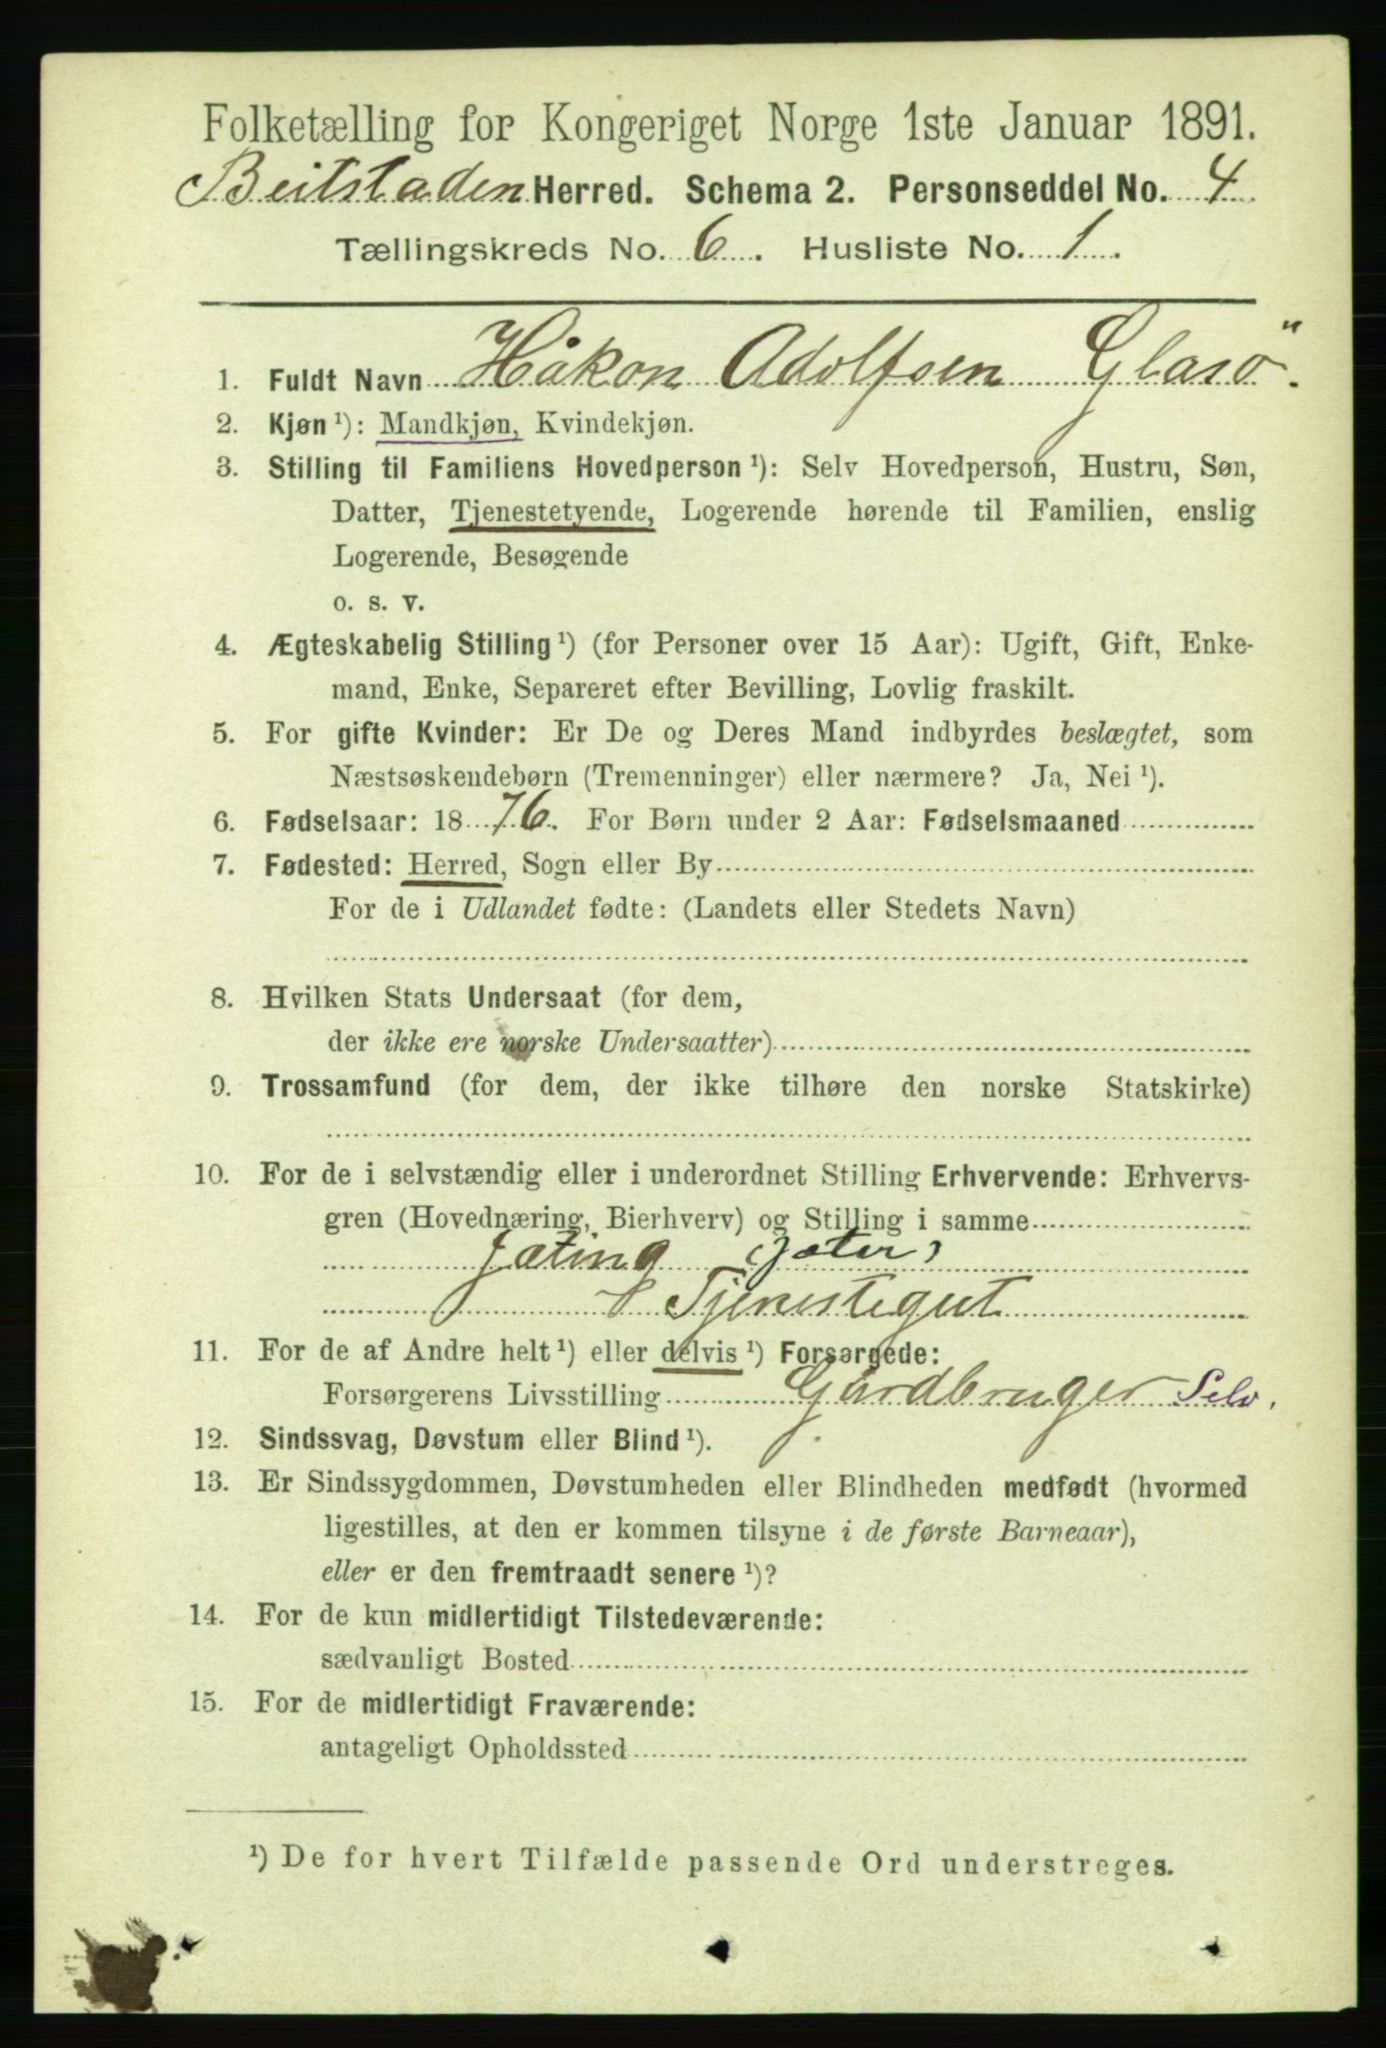 Folketælling for Kongeriget Norge 1ste Januar 1891.
Beitstaden Herred. Schema 2. Personseddel No. 4
Tællingskreds No. 6. Husliste No. 1.
1. Fuldt Navn Håkon Adolfsen Glasö.
2. Kjøn ¹): Mandkjøn, Kvindekjøn.
3. Stilling til Familiens Hovedperson ¹): Selv Hovedperson, Hustru, Søn,
Datter, Tjenestetyende, Logerende hørende til Familien, enslig
Logerende, Besøgende
o. s. v.
4. Ægteskabelig Stilling ¹) (for Personer over 15 Aar): Ugift, Gift, Enke-
mand, Enke, Separeret efter Bevilling, Lovlig fraskilt.
5. For gifte Kvinder: Er De og Deres Mand indbyrdes beslægtet, som
Næstsøskendebørn (Tremenninger) eller nærmere? Ja, Nei ¹).
6. Fødselsaar: 1876. For Børn under 2 Aar: Fødselsmaaned
7. Fødested: Herred, Sogn eller By
For de i Udlandet fødte: (Landets eller Stedets Navn)
8. Hvilken Stats Undersaat (for dem,
der ikke ere norske Undersaatter)
9. Trossamfund (for dem, der ikke tilhøre den norske Statskirke)
10. For de i selvstændig eller i underordnet Stilling Erhvervende: Erhvervs-
gren (Hovednæring, Bierhverv) og Stilling i samme
Jæting (Jæter)
Tjenestegut
11. For de af Andre helt ¹) eller delvis ¹) Forsørgede:
Forsørgerens Livsstilling Gårdbruger Selv.
12. Sindssvag, Døvstum eller Blind ¹).
13. Er Sindssygdommen, Døvstumheden eller Blindheden medfødt (hvormed
ligestilles, at den er kommen tilsyne i de første Barneaar),
eller er den fremtraadt senere ¹)?
14. For de kun midlertidigt Tilstedeværende:
sædvanligt Bosted
15. For de midlertidigt Fraværende:
antageligt Opholdssted
¹) De for hvert Tilfælde passende Ord understreges.